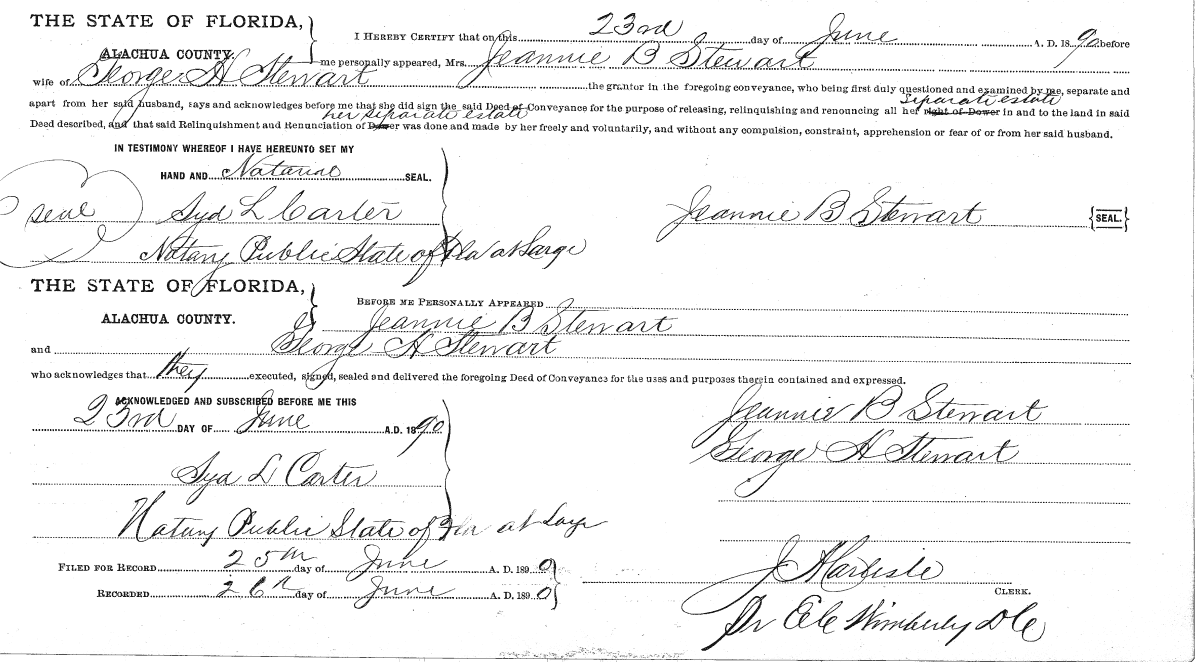 THE STATE OF FLORIDA,
ALACHUA COUNTY.
I HEREBY CERTIFY that on this 23rd day of June A. D. 1890 before
me personally appeared, Mrs. Jeannie B Stewart
wife of George H Stewart the grantor in the foregoing conveyance, who being first duly questioned and examined by me, separate and
separate estate
apart from her said husband, says and acknowledges before me that she did sign the said Deed of Conveyance for the purpose of releasing, relinquishing and renouncing all her right of Dower in and to the land in said
her separate estate
Deed described, and that said Relinquishment and Renunciation of Dower was done and made by her freely and voluntarily, and without any compulsion, constraint, apprehension or fear of or from her said husband.
IN TESTIMONY WHEREOF I HAVE HEREUNTO SET MY
HAND AND Notarial SEAL.
seal Syd L Carter
Jeannie B Stewart {SEAL.}
Notary Public State of Fla at Large
THE STATE OF FLORIDA,
ALACHUA COUNTY.
BEFORE ME PERSONALLY APPEARED
Jeannie B Stewart
and George H Stewart
who acknowledges that they executed, signed, sealed and delivered the foregoing Deed of Conveyance for the uses and purposes therein contained and expressed.
ACKNOWLEDGED AND SUBSCRIBED BEFORE ME THIS
23rd DAY OF June A.D. 1890
Jeannie B Stewart
George H Stewart
Syd L Carter
Notary Public State of Fla at Large
FILED FOR RECORD 25th day of June A. D. 1890
RECORDED 26th day of June A. D. 1890
J A Carlisle
CLERK.
Wimberly DC